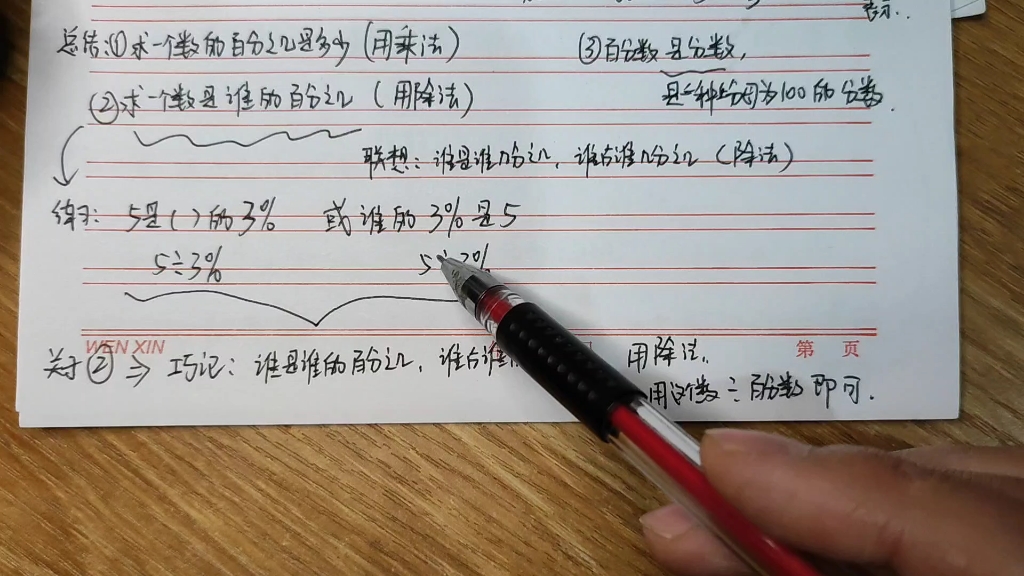 表示.
总结:①求一个数的百分之几是多少(用乘法)
③百分数是分数,
②求一个数是谁的百分之几(用除法)
是一种分母为100的分数.
联想:谁是谁几分之几,谁占谁几分之几(除法)
练习: 5是( )的3% 或谁的3%是5
5÷3% 5÷3%
WEN XIN 第 页
关于②⇒巧记:谁是谁的百分之几,谁占谁 用除法.
用这个数÷百分数即可.